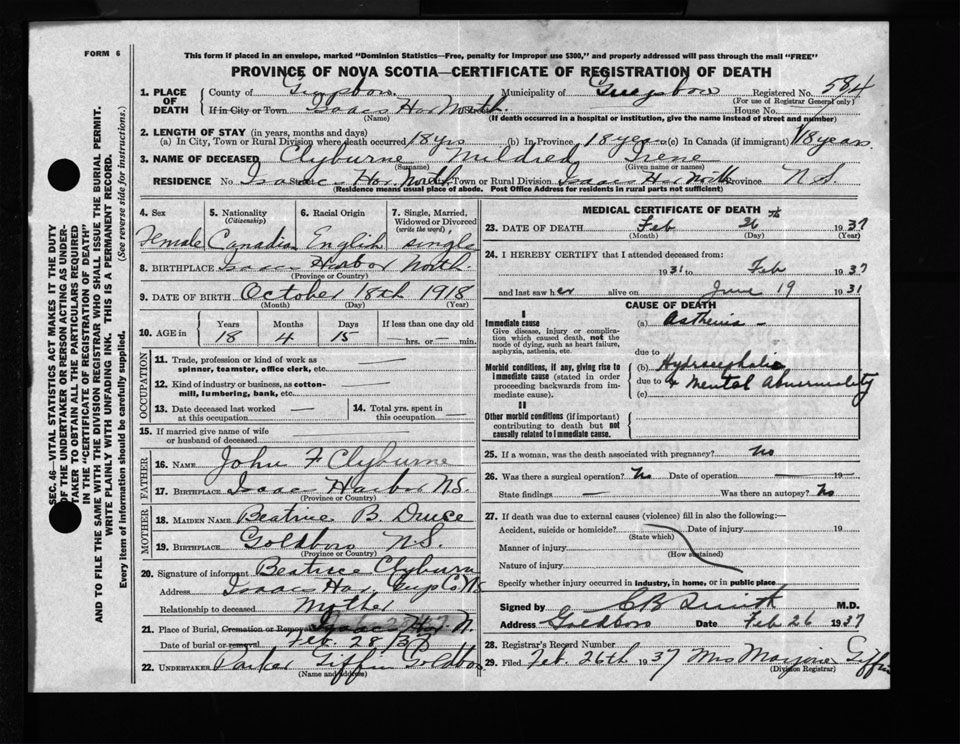 FORM 6
This form if placed in an envelope, marked "Dominion Statistics—Free, penalty for improper use $300," and properly addressed will pass through the mail "FREE"
PROVINCE OF NOVA SCOTIA—CERTIFICATE OF REGISTRATION OF DEATH
1. PLACE OF DEATH County of Guysboro Municipality of Guysboro Registered No. 584
(For use of Registrar General only)
If in City or Town Isaacs Har North House No.
(Name) (If death occurred in a hospital or institution, give the name instead of street and number)
2. LENGTH OF STAY (in years, months and days)
(a) In City, Town or Rural Division where death occurred 18 yrs (b) In Province 18 years (c) In Canada (if immigrant) 18 years
3. NAME OF DECEASED Clyburne Mildred Irene
(Surname) (Given name or names)
RESIDENCE No. Isaacs Har. North Town or Rural Division Isaac Har North Province N.S.
(Residence means usual place of abode. Post Office Address for residents in rural parts not sufficient)
4. Sex 5. Nationality (Citizenship) 6. Racial Origin 7. Single, Married, Widowed or Divorced (write the word)
Female Canadian English single
8. BIRTHPLACE Isaac Harbor North.
(Province or Country)
9. DATE OF BIRTH October 18th 1918
(Month) (Day) (Year)
10. AGE in Years Months Days If less than one day old
18 4 15 — hrs. or — min.
OCCUPATION
11. Trade, profession or kind of work as spinner, teamster, office clerk, etc. —
12. Kind of industry or business, as cotton-mill, lumbering, bank, etc. —
13. Date deceased last worked at this occupation — 14. Total yrs. spent in this occupation —
15. If married give name of wife or husband of deceased —
FATHER
16. NAME John F Clyburne
17. BIRTHPLACE Isaac Harbor N.S.
(Province or Country)
MOTHER
18. MAIDEN NAME Beatrice B. Druce
19. BIRTHPLACE Goldboro N.S.
(Province or Country)
20. Signature of informant Beatrice Clyburn
Address Isaac Har. Guys Co N.S
Relationship to deceased Mother
21. Place of Burial, Cremation or Removal Isaac Har N.
Date of burial or removal Feb. 28/37
22. UNDERTAKER Parker Giffin Goldboro
(Name and address)
MEDICAL CERTIFICATE OF DEATH
23. DATE OF DEATH Feb 26th 1937
(Month) (Day) (Year)
24. I HEREBY CERTIFY that I attended deceased from:
1931 to Feb 1937
and last saw her alive on June 19 1931
CAUSE OF DEATH
I
Immediate cause
Give disease, injury or complication which caused death, not the mode of dying, such as heart failure, asphyxia, asthenia, etc.
(a) Asthenia —
due to
Morbid conditions, if any, giving rise to immediate cause (stated in order proceeding backwards from immediate cause).
(b) Hydrocephalic
due to + Mental Abnormality
(c)
II
Other morbid conditions (if important) contributing to death but not causally related to immediate cause.
25. If a woman, was the death associated with pregnancy? No
26. Was there a surgical operation? No Date of operation — 19 —
State findings — Was there an autopsy? No
27. If death was due to external causes (violence) fill in also the following:
Accident, suicide or homicide? Date of injury 19
(State which)
Manner of injury
(How sustained)
Nature of injury
Specify whether injury occurred in industry, in home, or in public place
Signed by C B Smith M.D.
Address Goldboro Date Feb 26 1937
28. Registrar's Record Number
29. Filed Feb. 26th 1937 Mrs Marjorie Giffin
(Division Registrar)
SEC. 46—VITAL STATISTICS ACT MAKES IT THE DUTY
OF THE UNDERTAKER OR PERSON ACTING AS UNDER-
TAKER TO OBTAIN ALL THE PARTICULARS REQUIRED
IN THE "CERTIFICATE OF REGISTRATION OF DEATH"
AND TO FILE THE SAME WITH THE DIVISION REGISTRAR WHO SHALL ISSUE THE BURIAL PERMIT.
WRITE PLAINLY WITH UNFADING INK. THIS IS A PERMANENT RECORD.
Every item of information should be carefully supplied. (See reverse side for instructions.)